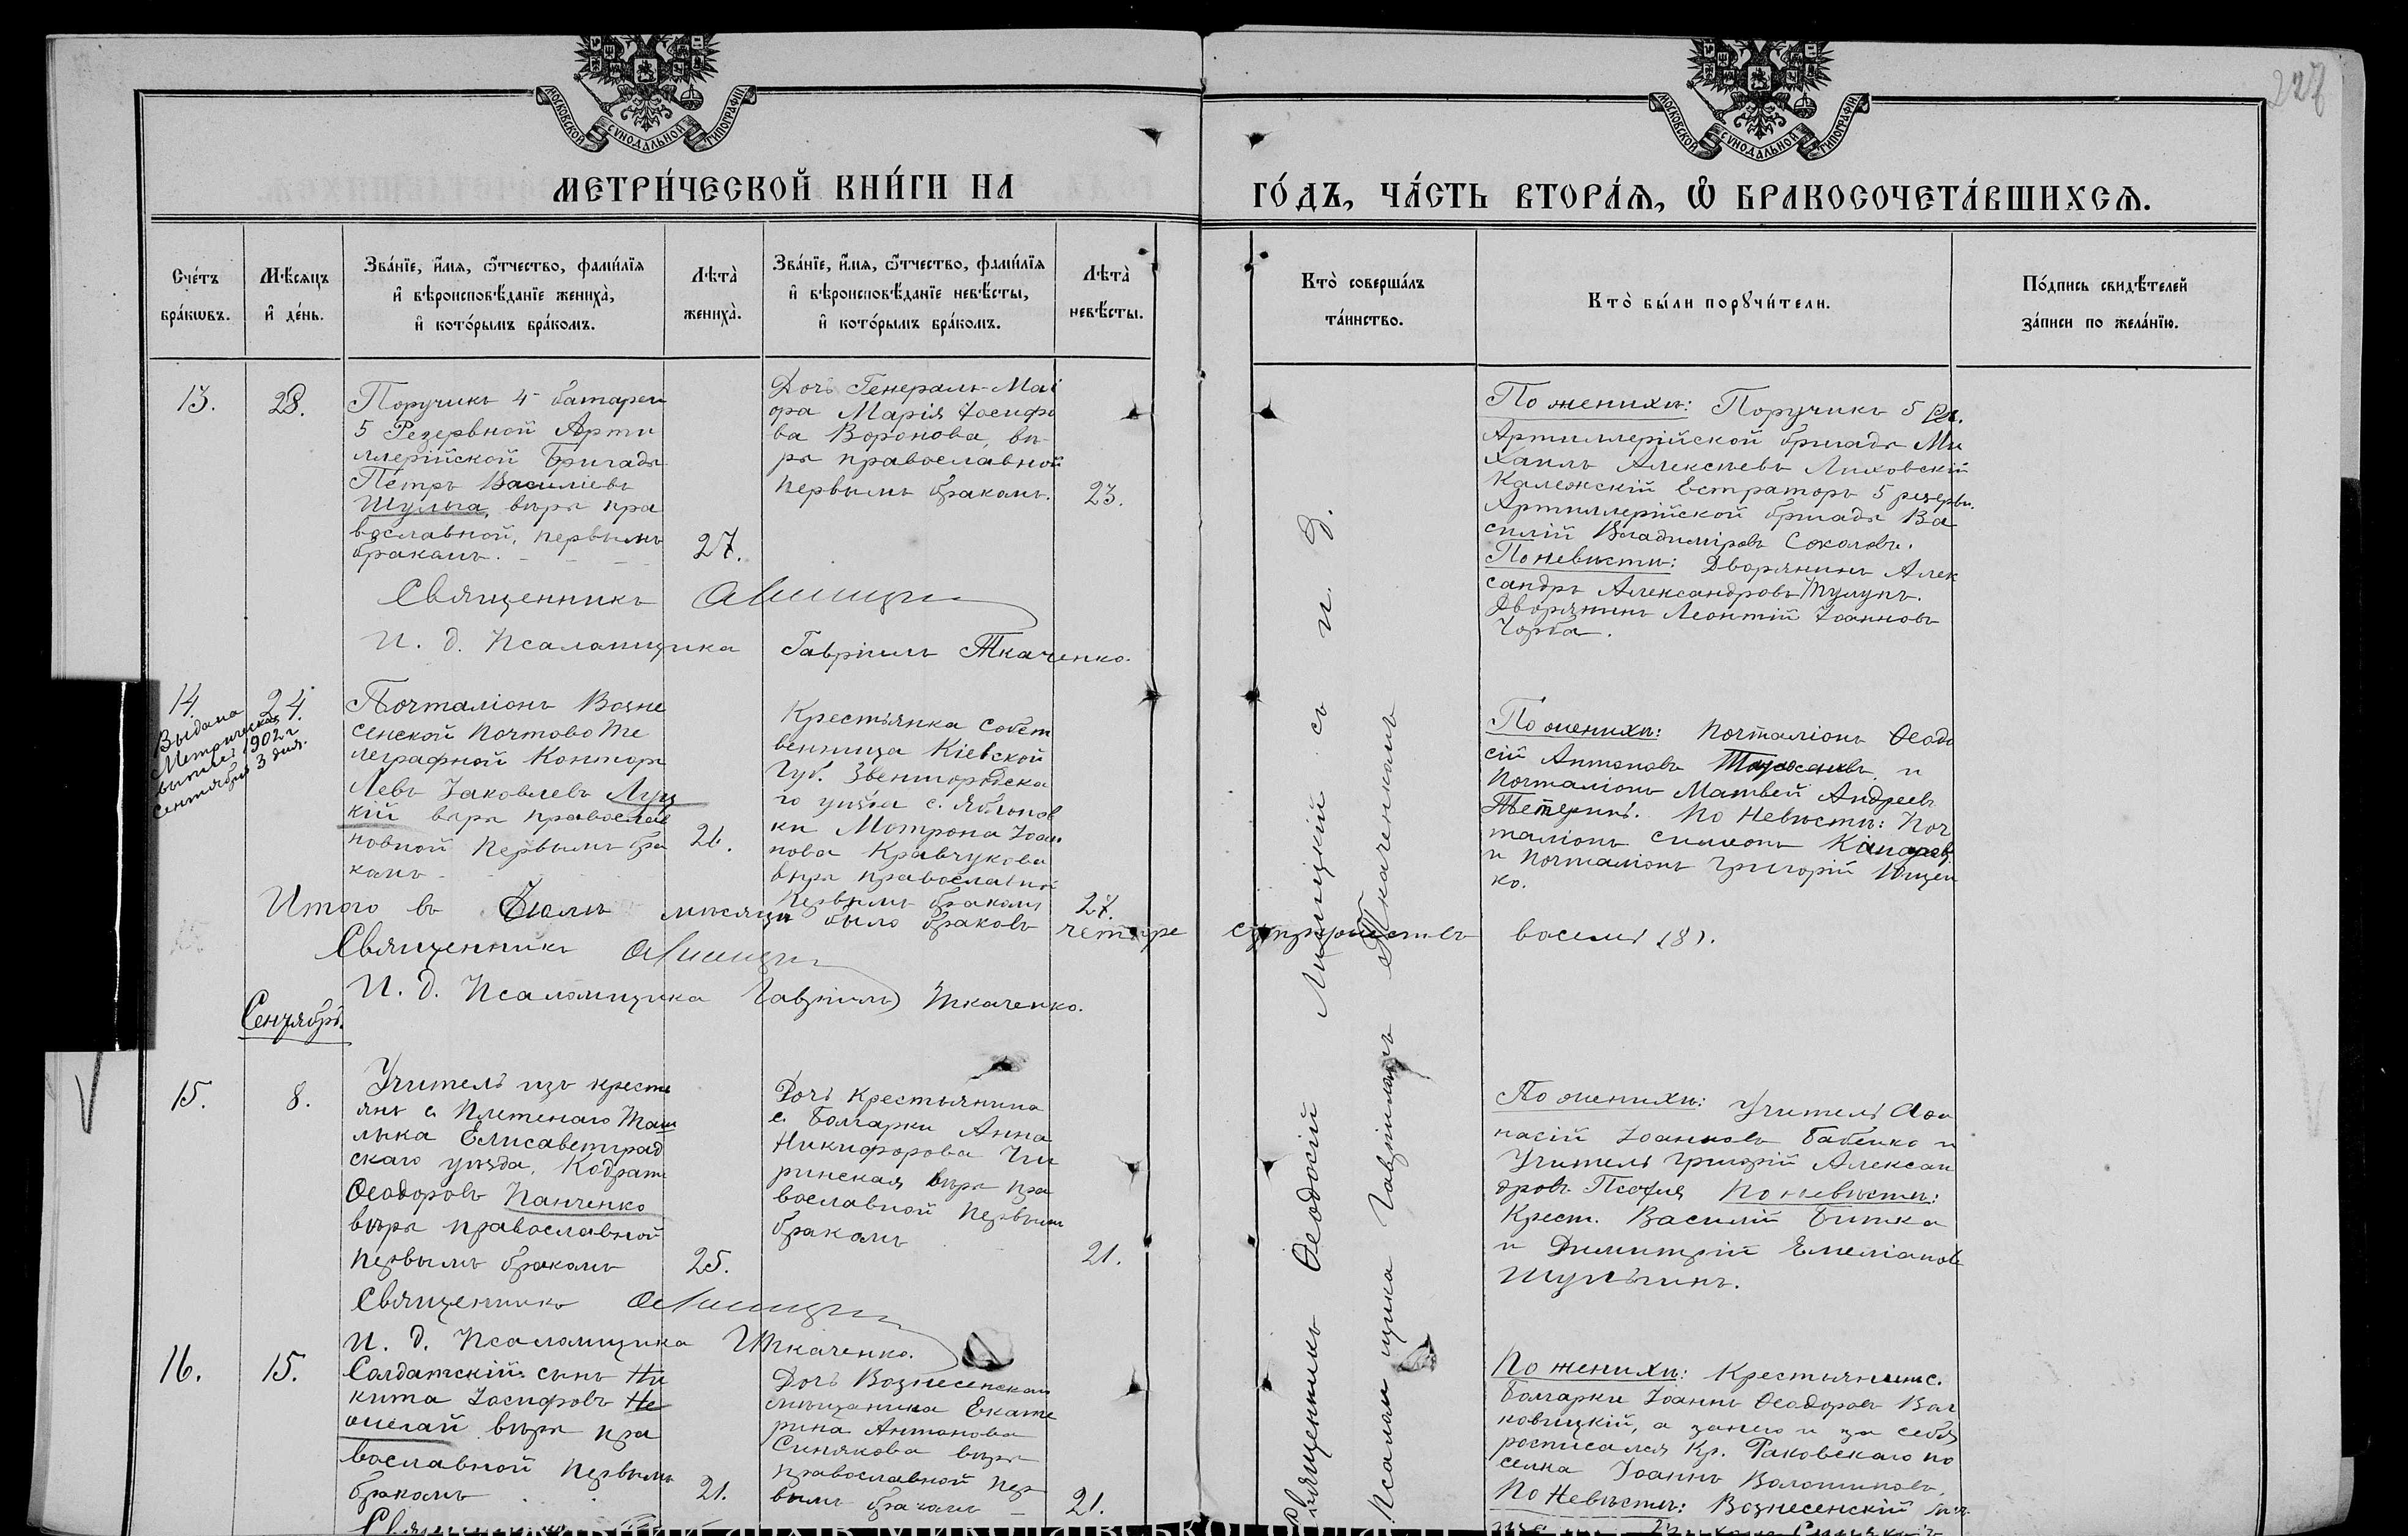 227
МОСКОВСКОЙ СУНОДАЛЬНОЙ ТИПОГРАФІИ
МОСКОВСКОЙ СУНОДАЛЬНОЙ ТИПОГРАФІИ
МЕТРИ́ЧЕСКОЙ КНИ́ГИ НА
ГО́ДЪ, ЧА́СТЬ ВТОРА́Я, Ѡ БРАКОСОЧЕТА́ВШИХСЯ.
Сче́тъ
бра́кѡвъ.
Мѣ́сяцъ
и҆ де́нь.
Зва́нїе, и҆́мя, ѻ҆́тчество, фами́лїя
и҆ вѣроисповѣ́данїе жениха̀,
и҆ кото́рымъ бра́комъ.
Лѣта̀
жениха̀.
Зва́нїе, и҆́мя, ѻ҆́тчество, фами́лїя
и҆ вѣроисповѣ́данїе невѣ́сты,
и҆ кото́рымъ бра́комъ.
Лѣта̀
невѣ́сты.
Кто̀ соверша́лъ
та́инство.
Кто̀ бы́ли порꙋчи́тели.
По́дпись свидѣ́телей
за́писи по жела́нїю.
13.
28.
Поручикъ 4 батареи
5 Резервной Арти
ллерійской Бригады
Петръ Василіевъ
Шульга, вѣры пра
вославной, первымъ
бракомъ.
27.
Дочь Генералъ-Маі
ора Марія Іосифо
ва Воронова, вѣ-
ры православной
первымъ бракомъ.
23.
По женихѣ: Поручикъ 5 Рез.
Артиллерійской бригады Ми
хаилъ Алексѣевъ Лиховскій
Калежскій Естраторъ 5 резервн.
Артиллерійской бригады Ва
силій Владиміровъ Соколовъ.
По невѣсты: Дворянинъ Алек
сандръ Александровъ Тулупъ.
Дворянинъ Леонтій Іоанновъ
Чорба.
Священникъ
И. д. Псаломщика Гавріилъ Ткаченко.
14.
24.
Выдана
Метрическая
выпись 1902 г
Сентября 3 дня.
Почталіонъ Возне
сенской Почтово Те
леграфной Конторы
Левъ Іаковлевъ Луц
кій вѣры православ
новной первымъ бра
комъ
26.
Крестьянка собст
венница Кіевской
Губ. Звенигородска
го уѣзда с. Яблонов
ки Мотрона Іоан
нова Кравчукова
вѣры православной
первымъ бракомъ
27.
По женихѣ: Почталіонъ Ѳеодо
сій Антоновъ и
Почталіонъ Матвей Андреевъ
Тетеринъ. По Невѣсты: Поч
таліонъ Симеонъ
и почталіонъ Григорій Ищен
ко.
Итого въ Іюлѣ мѣсяцѣ было браковъ четыре супружествъ восемь (8).
Священникъ
И. д. Псаломщика Гавріилъ Ткаченко.
Сентябрь.
15.
8.
Учитель изъ кресть
янъ с. Плетенаго Таш
лыка Елисаветград
скаго уѣзда, Кодратъ
Ѳеодоровъ Панченко
вѣры православной
первымъ бракомъ
25.
Дочь крестьянина
с. Болгарки Анна
Никифорова Чи
ринская вѣры пра
вославной первымъ
бракомъ
21.
По женихѣ: Учитель Аѳа
насій Іоанновъ Бабенко и
Учитель Григорій Алексан
дровъ По невѣсты:
Крест. Василій Битка
и Димитрій Емеліановъ
Шульгинъ.
Священникъ
И. д. Псаломщика Г Ткаченко.
16.
15.
Солдатскій сынъ Ни
кита Іосифовъ Не
ожелай вѣры пра
вославной первымъ
бракомъ
21.
Дочь Вознесенскаго
мѣщанина Екате
рина Антонова
Синякова вѣры
православной пер
вымъ бракомъ
21.
По женихѣ: Крестьянинъ с.
Болгарки Іоаннъ Ѳеодоровъ Вол
ковицкій, а за него и за себя
росписался Кр. Раковскаго по
селка Іоаннъ Волошиновъ.
По Невѣсты: Вознесенскій
Священникъ Ѳеодосій Лисицкій съ и. д.
Псаломщика Гавріиломъ Ткаченкомъ